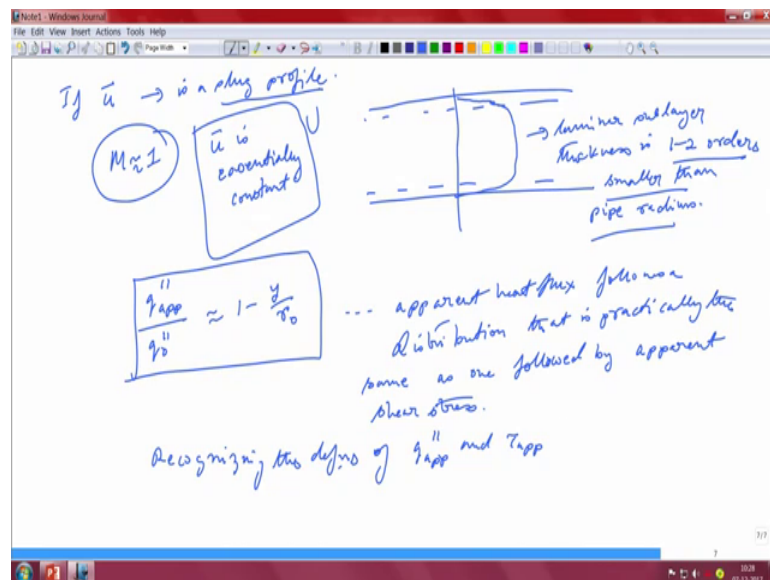 Note1 - Windows Journal
File Edit View Insert Actions Tools Help
Page Width
If ū → is a plug profile.
M ≈ 1
ū is
essentially
constant
U
→ laminar sublayer
thickness is 1-2 orders
smaller than
pipe radius.
q''app / q''o ≈ 1 - y/ro
... apparent heat flux follows a
Distribution that is practically the
same as one followed by apparent
shear stress.
Recognizing the defns of q''app and τapp
7/7
7
10:28